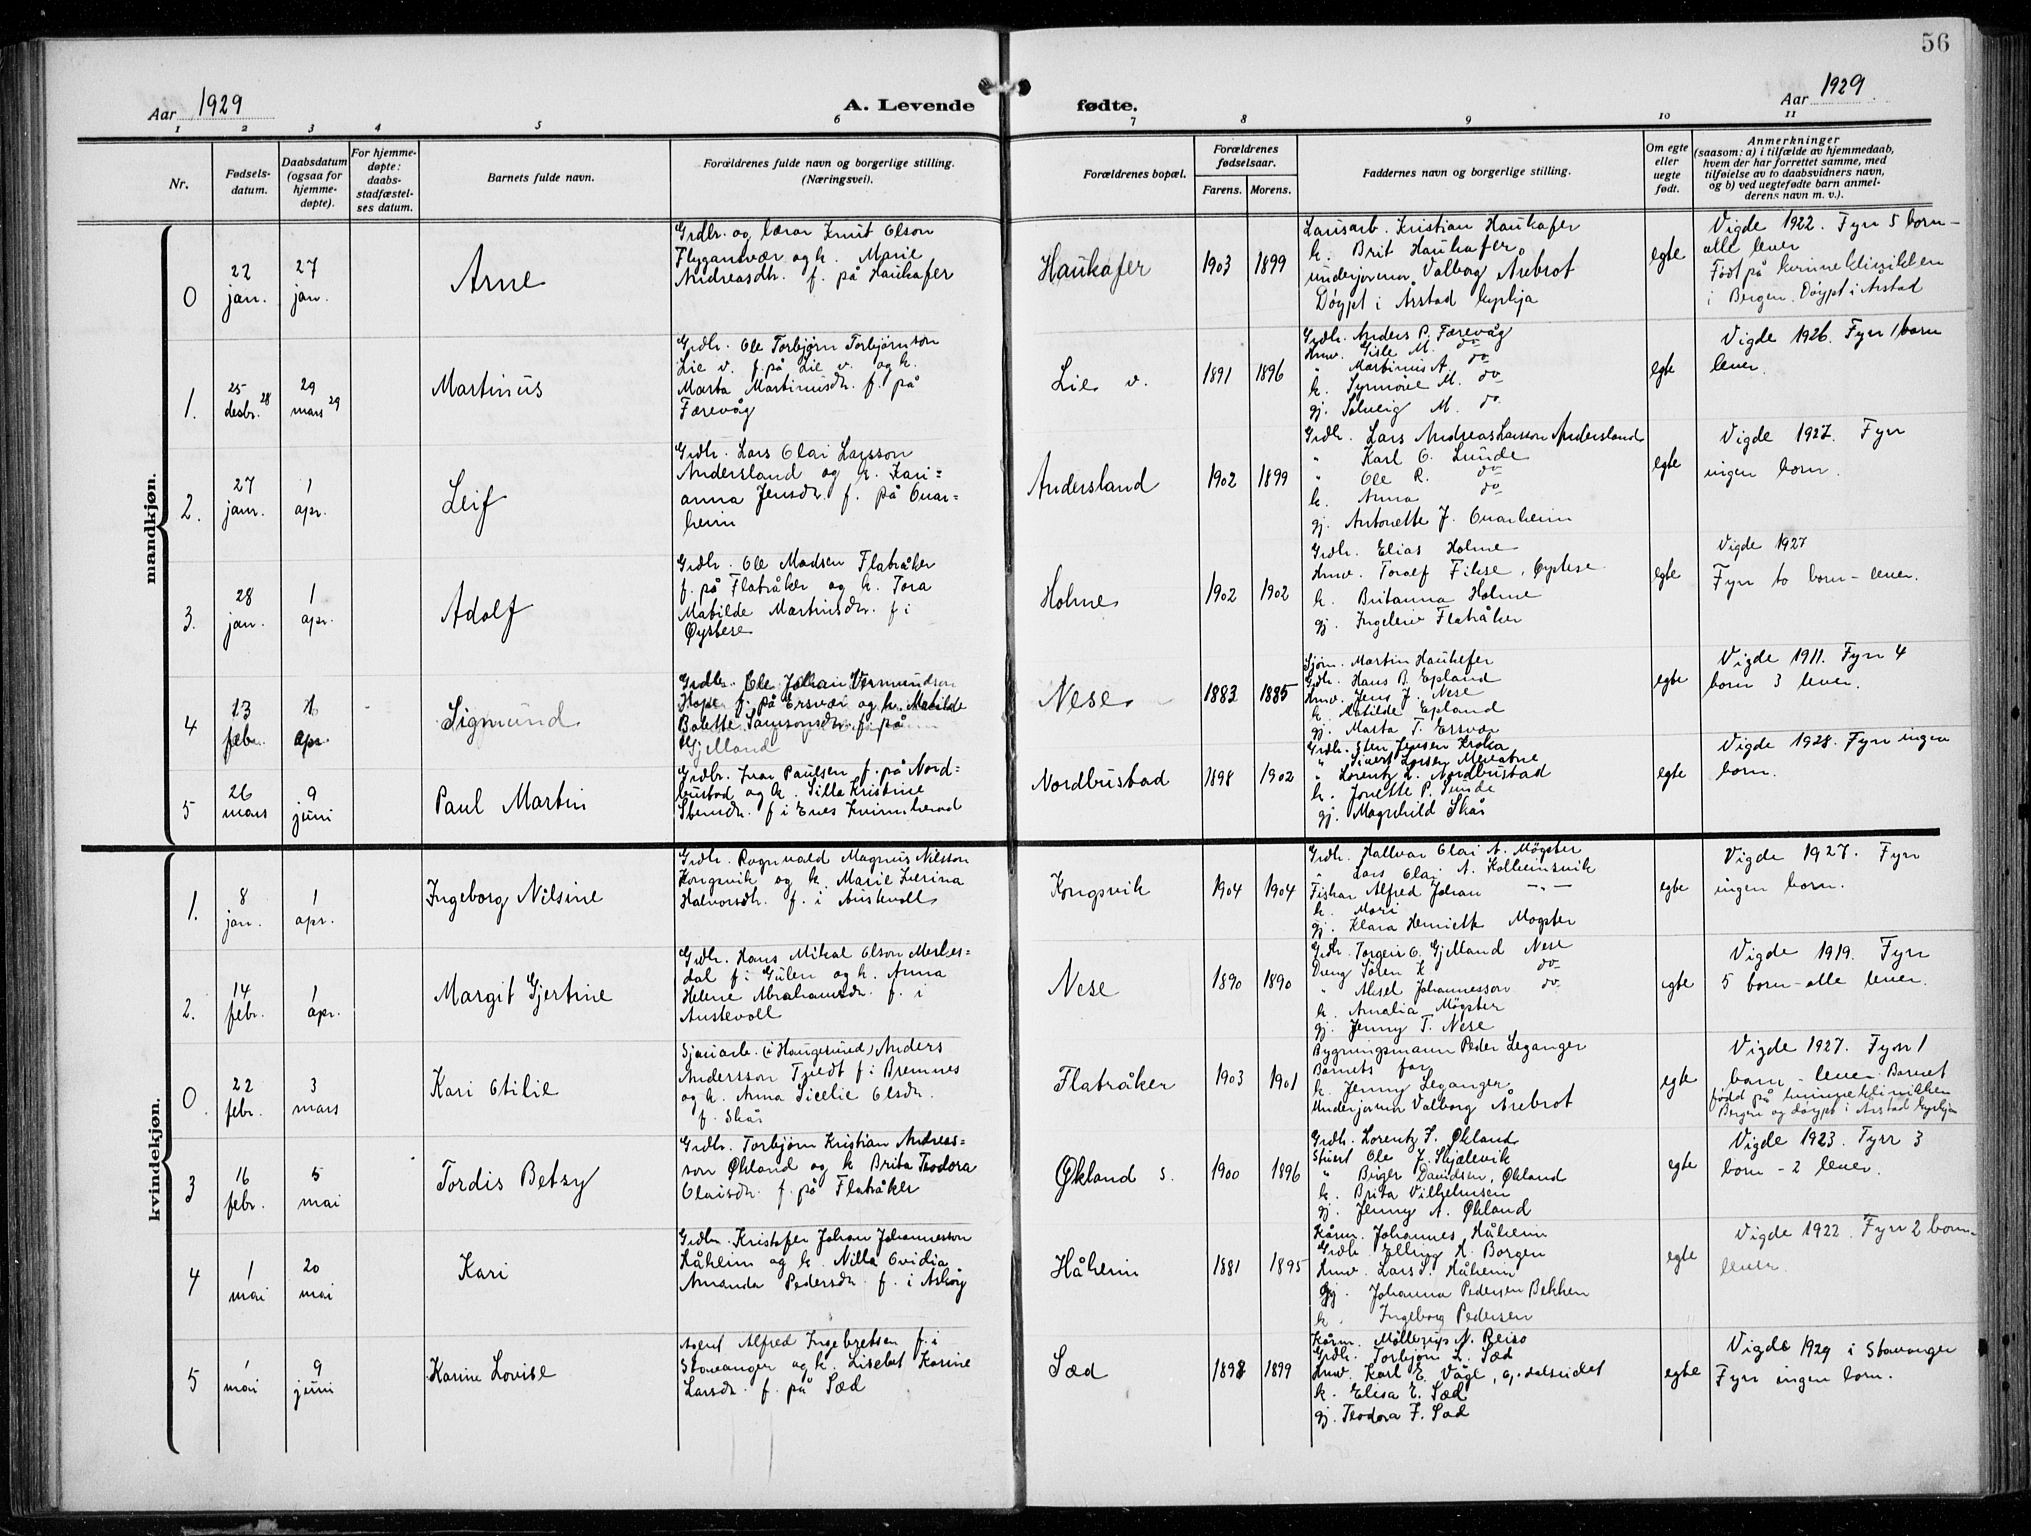 56
Aar 1929
A. Levende fødte.
Aar 1929
1 2 3 4 5 6 7 8 9 10 11
Nr.
Fødsels-
datum.
Daabsdatum
(ogsaa for
hjemme-
døpte).
For hjemme-
døpte:
daabs-
stadfæstel-
ses datum.
Barnets fulde navn.
Forældrenes fulde navn og borgerlige stilling.
(Næringsvei).
Forældrenes bopæl.
Forældrenes
fødselsaar.
Farens. Morens.
Faddernes navn og borgerlige stilling.
Om egte
eller
uegte
født.
Anmerkninger
(saasom: a) i tilfælde av hjemmedaab,
hvem der har forrettet samme, med
tilføielse av to daabsvidners navn,
og b) ved uegtefødte barn anmel-
derens navn m. v.).
mandkjøn.
0
22
jan.
27
jan.
Arne
Grdbr. og lærar Knut Olson
Flygansvær og k. Marie
Andreasdtr. f. på Haukafer
Haukafer
1903 1899
Lausarb. Kristian Haukafer
k. Brit Haukafer
underjormor Valborg Årebrot
Døypt i Årstad kyrkja
egte
Vigde 1922. Fyrr 5 born-
alle lever
Født på kvinneklinikken
i Bergen. Døypt i Årstad
1.
25
desbr. 28
29
mars 29
Martinus
Grdbr. Ole Torbjørn Torbjørnson
Lie v. f. på Lie v. og k.
Marta Martinusdtr. f. på
Færevåg
Lie v.
1891 1896
Grdbr. Anders P. Færevåg
Hmv. Gisle M. do
" Martinus A. do
k. Synnøve M. do
gj. Solveig M. do
egte
Vigde 1926. Fyrr 1 born
lever.
2.
27
janr.
1
apr.
Leif
Grdbr. Lars Olai Larsson
Andersland og k. Kari-
anna Jensdtr. f. på Kvar-
heim
Andersland
1902 1899
Grdbr. Lars Andreas Larsson Andersland
" Karl O. Lunde
" Ole R. do
k. Anna do
gj. Antonette J. Kvarheim
egte
Vigde 1927. Fyrr
ingen born.
3.
28
jan.
1
apr.
Adolf
Grdbr. Ole Madsen Flatråker
f. på Flatråker og k. Tora
Matilde Martinsdtr. f i
Øystese
Holme
1902 1902
Grdbr. Elias Holme
Hmv. Toralf Fikse, Øystese
k. Britanna Holme
gj. Ingeleiv Flatråker
egte
Vigde 1927
Fyrr to born - lever.
4
13
febr.
1
apr.
Sigmund
Grdbr. Ole Johan Vermundson
Hope f. på Ersvær og k. Matilde
Bolette Samsonsdtr. f. på
Gjelland
Nese
1883 1885
Sjøm. Martin Haukefer
Grdbr. Hans B. Epland
Hmv. Jens J. Nese
k. Matilde Epland
gj. Marta T. Ersvær
egte
Vigde 1911. Fyrr 4
born 3 lever.
5
26
mars
9
juni
Paul Martin
Grdbr. Ivar Paulsen f. på Nord-
bustad og k. Silla Kristine
Stensdtr. f i Enes Kvinnherad
Nordbustad
1898 1902
Grdbr. Sten Jensen Kroka
" Sivert Larsen
" Lorentz L. Nordbustad
k. Jonette P. Sunde
gj. Magnhild Skår
egte
Vigde 1928. Fyrr ingen
born.
kvindekjøn.
1.
8
jan.
1
apr.
Ingeborg Nilsine
Grdbr. Ragnvald Magnus Nilsson
Kongsvik og k. Marie Iverina
Halvorsdtr. f. i Austevoll
Kongsvik
1904 1904
Grdbr. Hallvar Olai A. Møgster
" Lars Olai A. Kolbeinsvik
Fiskar Alfred Johan —"—
k. Mari
gj. Klara Henriette Møgster
egte
Vigde 1927. Fyrr
ingen born.
2.
14
febr.
1
apr.
Margit Gjertine
Grdbr. Hans Mikal Olson Merkes-
dal f i Gulen og k. Anna
Helene Abrahamsdtr. f. i
Austevoll
Nese
1890 1890
Grdbr. Torgeir O. Gjelland Nese
Dreng Søren K. do
" Aksel Johannesson do
k. Amalia Møgster
gj. Jenny T. Nese
egte
Vigde 1919. Fyrr
5 born-alle lever.
0.
22
febr.
3
mars
Kari Otilie
Sjauarb. (i Haugesund) Anders
Andersson Tvedt f i Bremnes
og k. Anna Sicelie Olsdtr.
f. Skår
Flatråker
1903 1901
Bygningsmann Peder Leganger
Barnets far
k. Jenny Leganger
Underjormor Valborg Årebrot
egte
Vigde 1927. Fyrr 1
born - lever. Barnet
født på kvinneklinikken
Bergen og døypt i Årstad kyrkja
3
16
febr.
5
mai
Tordis Betsy
Grdbr. Torbjørn Kristian Andreas-
son Økland og k Brita Teodora
Olaisdtr. f. på Flatråker
Økland s.
1900 1896
Grdbr. Lorentz J. Økland
Stuert Ole J. Skjælevik
" Birger Davidsen, Økland
k. Brita Vilhelmsen
gj. Jenny A. Økland
egte
Vigde 1923. Fyrr 3
born - 2 lever.
4
1
mai
20
mai
Kari
Grdbr. Kristofer Johan Johannesson
Håheim og k. Nilla Ovidia
Amanda Pedersdtr. f. i Askøy
Håheim
1881 1895
Kårm. Johannes Håheim
Grdbr. Elling H. Borgen
Hmv. Lars S. Håheim
gj. Johanna Pedersen Bekken
k. Ingeborg Pedersen
egte
Vigde 1922. Fyrr 2 born-
lever.
5
1
mai
9
juni
Karine Lovise
Agent Alfred Ingebretsen f. i
Stavanger og k. Lisebet Karine
Larsdtr. f. på Sæd
Sæd
1898 1899
Kårm. Møllerup N. Reiso
Grdbr. Torbjørn L. Sæd
Hmv. Karl E. Våge,
k. Elisa E. Sæd
gj. Teodora F. Sæd
egte
Vigde 1929 i Stavanger
Fyrr ingen born.